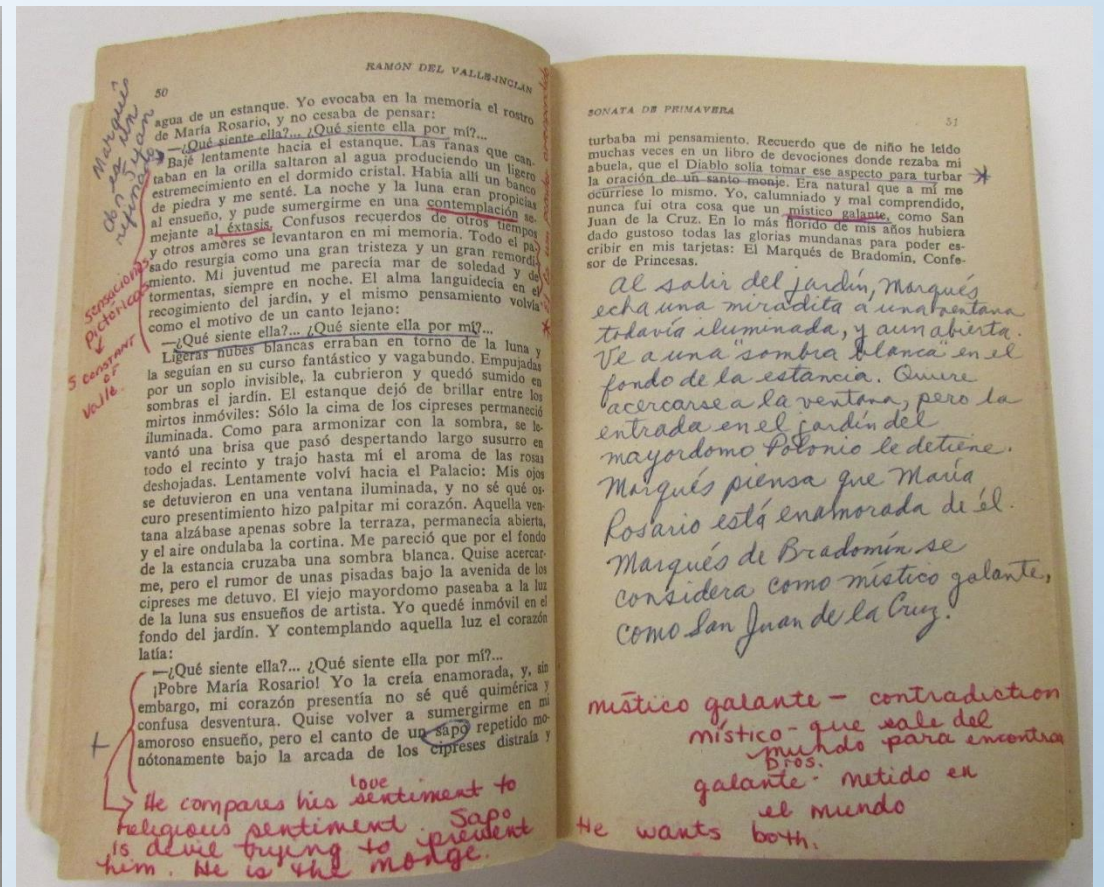 RAMÓN DEL VALLE-INCLÁN
50
agua de un estanque. Yo evocaba en la memoria el rostro
de María Rosario, y no cesaba de pensar:
—¿Qué siente ella?... ¿Qué siente ella por mí?...
Bajé lentamente hacia el estanque. Las ranas que can-
taban en la orilla saltaron al agua produciendo un ligero
estremecimiento en el dormido cristal. Había allí un banco
de piedra y me senté. La noche y la luna eran propicias
al ensueño, y pude sumergirme en una contemplación se-
mejante al éxtasis. Confusos recuerdos de otros tiempos
y otros amores se levantaron en mi memoria. Todo el pa-
sado resurgía como una gran tristeza y un gran remordi-
miento. Mi juventud me parecía mar de soledad y de
tormentas, siempre en noche. El alma languidecía en el
recogimiento del jardín, y el mismo pensamiento volvía
como el motivo de un canto lejano:
—¿Qué siente ella?... ¿Qué siente ella por mí?...
Ligeras nubes blancas erraban en torno de la luna y
la seguían en su curso fantástico y vagabundo. Empujadas
por un soplo invisible, la cubrieron y quedó sumido en
sombras el jardín. El estanque dejó de brillar entre los
mirtos inmóviles: Sólo la cima de los cipreses permaneció
iluminada. Como para armonizar con la sombra, se le-
vantó una brisa que pasó despertando largo susurro en
todo el recinto y trajo hasta mí el aroma de las rosas
deshojadas. Lentamente volví hacia el Palacio: Mis ojos
se detuvieron en una ventana iluminada, y no sé qué os-
curo presentimiento hizo palpitar mi corazón. Aquella ven-
tana alzábase apenas sobre la terraza, permanecía abierta,
y el aire ondulaba la cortina. Me pareció que por el fondo
de la estancia cruzaba una sombra blanca. Quise acercar-
me, pero el rumor de unas pisadas bajo la avenida de los
cipreses me detuvo. El viejo mayordomo paseaba a la luz
de la luna sus ensueños de artista. Yo quedé inmóvil en el
fondo del jardín. Y contemplando aquella luz el corazón
latía:
—¿Qué siente ella?... ¿Qué siente ella por mí?...
¡Pobre María Rosario! Yo la creía enamorada, y, sin
embargo, mi corazón presentía no sé qué quimérica y
confusa desventura. Quise volver a sumergirme en mi
amoroso ensueño, pero el canto de un sapo repetido mo-
nótonamente bajo la arcada de los cipreses distraía y
Marqués
es un
don Juan
refinado
sensaciones
Pictóricas
5 constant
of
Valle.
+
love
He compares his sentiment to
religious sentiment Sapo
is devil trying to prevent
him. He is the monge.
SONATA DE PRIMAVERA
51
turbaba mi pensamiento. Recuerdo que de niño he leído
muchas veces en un libro de devociones donde rezaba mi
abuela, que el Diablo solía tomar ese aspecto para turbar
la oración de un santo monje. Era natural que a mí me
ocurriese lo mismo. Yo, calumniado y mal comprendido,
nunca fui otra cosa que un místico galante, como San
Juan de la Cruz. En lo más florido de mis años hubiera
dado gustoso todas las glorias mundanas para poder es-
cribir en mis tarjetas: El Marqués de Bradomín, Confe-
sor de Princesas.
Al salir del jardín, Marqués
echa una miradita a una ventana
todavía iluminada, y aun abierta.
Ve a una "sombra blanca" en el
fondo de la estancia. Quiere
acercarse a la ventana, pero la
entrada en el jardín del
mayordomo Polonio le detiene.
Marqués piensa que María
Rosario está enamorada de él.
Marqués de Bradomín se
considera como místico galante,
como San Juan de la Cruz.
místico galante — contradiction
místico - que sale del
mundo para encontra
Dios.
galante - metido en
el mundo
He wants both.